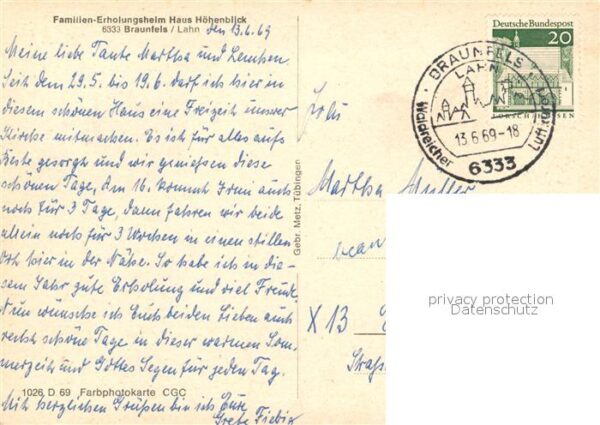 Familien-Erholungsheim Haus Höhenblick
6333 Braunfels / Lahn den 13.6.69
Meine liebe Tante Martha und
Seit dem 29.5. bis 19.6. darf ich hier in
diesem schönen Haus eine Freizeit unserer
Kirche mitmachen. Es ist für alles aufs
Beste gesorgt und wir genießen diese
schönen Tage, den 16. kommt auch
noch für 3 Tage, dann fahren wir beide
allein noch für 3 Wochen in einen stillen
Ort hier in der Nähe. So habe ich in die-
sem Jahr gute Erholung und viel Freude.
Nun wünsche ich Euch beiden Lieben auch
recht schöne Tage in dieser warmen Som-
merzeit und Gottes Segen für jeden Tag.
1026 D 69 Farbphotokarte CGC
Mit herzlichen Grüßen bin ich Eure
Grete
Gebr. Metz, Tübingen
Deutsche Bundespost
20
BRAUNFELS
LAHN
Waldreicher
Luft
13.6.69-18
6333
Martha
X 13
Straß
privacy protection
Datenschutz